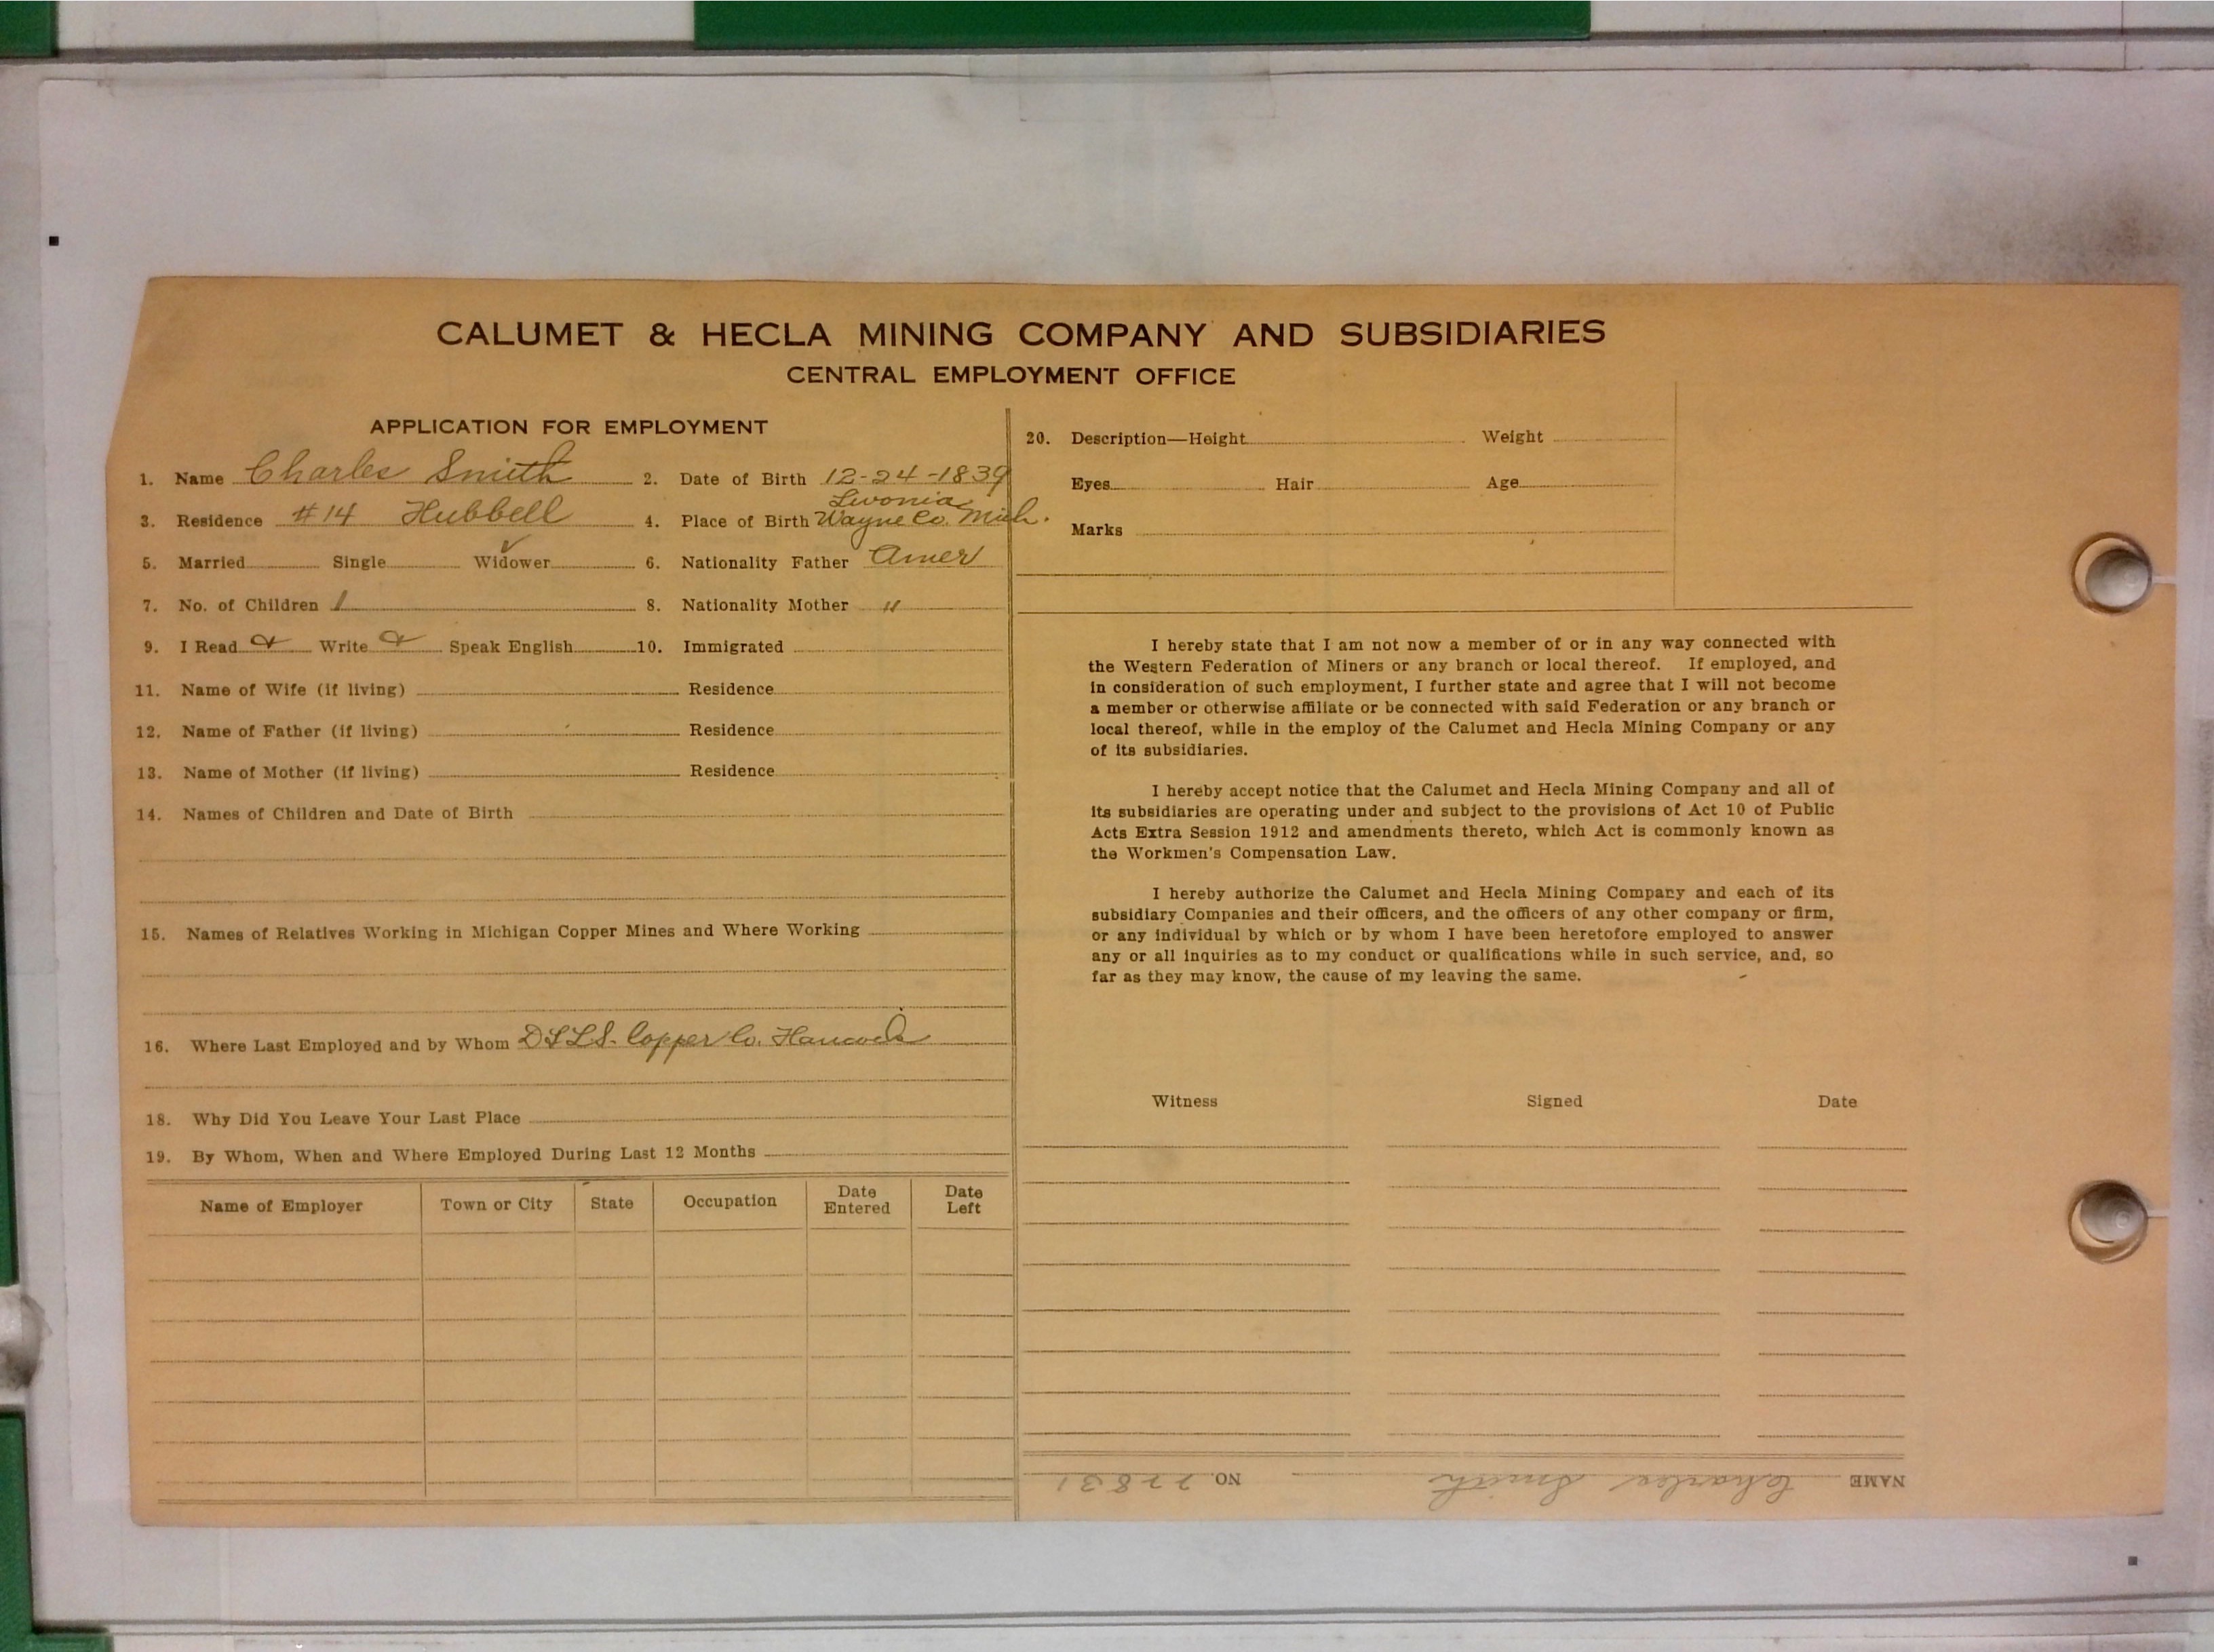 CALUMET & HECLA MINING COMPANY AND SUBSIDIARIES
CENTRAL EMPLOYMENT OFFICE
APPLICATION FOR EMPLOYMENT
1. Name Charles Smith 2. Date of Birth 12-24-1839
Livonia
3. Residence #14 Hubbell 4. Place of Birth Wayne Co. Mich.
5. Married Single Widower ✓ 6. Nationality Father Amer
7. No. of Children 1 8. Nationality Mother "
9. I Read & Write & Speak English 10. Immigrated
11. Name of Wife (if living) Residence
12. Name of Father (if living) Residence
13. Name of Mother (if living) Residence
14. Names of Children and Date of Birth
15. Names of Relatives Working in Michigan Copper Mines and Where Working
16. Where Last Employed and by Whom Copper Co. Hancock
18. Why Did You Leave Your Last Place
19. By Whom, When and Where Employed During Last 12 Months
Name of Employer Town or City State Occupation Date Entered Date Left
20. Description—Height Weight
Eyes Hair Age
Marks
I hereby state that I am not now a member of or in any way connected with
the Western Federation of Miners or any branch or local thereof. If employed, and
in consideration of such employment, I further state and agree that I will not become
a member or otherwise affiliate or be connected with said Federation or any branch or
local thereof, while in the employ of the Calumet and Hecla Mining Company or any
of its subsidiaries.
I hereby accept notice that the Calumet and Hecla Mining Company and all of
its subsidiaries are operating under and subject to the provisions of Act 10 of Public
Acts Extra Session 1912 and amendments thereto, which Act is commonly known as
the Workmen's Compensation Law.
I hereby authorize the Calumet and Hecla Mining Company and each of its
subsidiary Companies and their officers, and the officers of any other company or firm,
or any individual by which or by whom I have been heretofore employed to answer
any or all inquiries as to my conduct or qualifications while in such service, and, so
far as they may know, the cause of my leaving the same.
Witness Signed Date
NAME Charles Smith NO. 22831